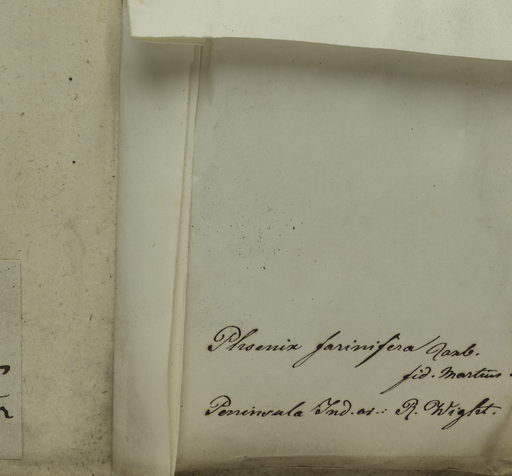 Phoenix farinifera Roxb.
fid. Martius
Peninsula Ind. or.: R. Wight.